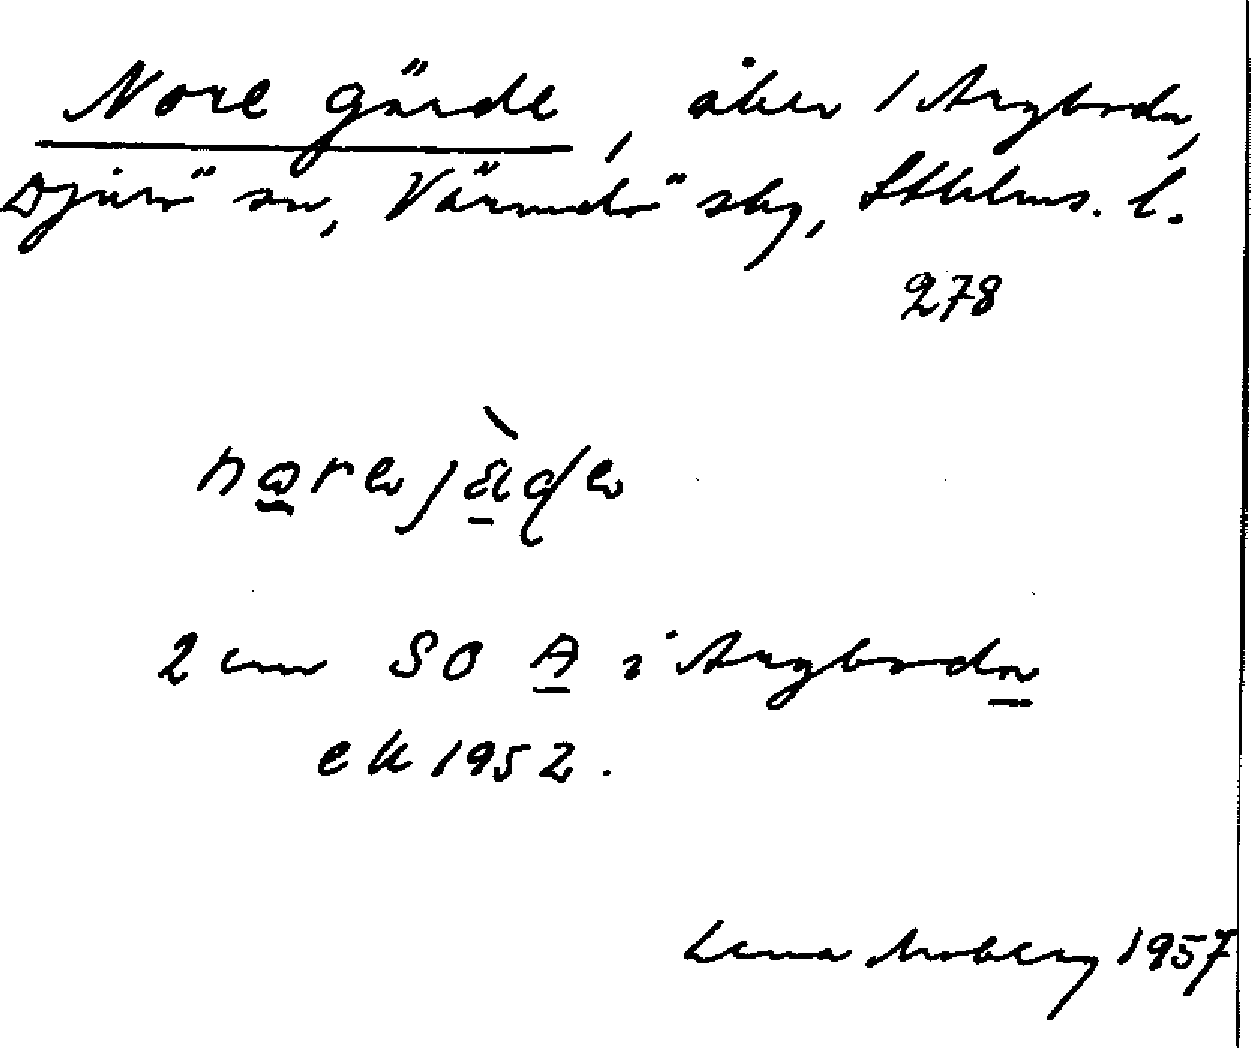 Nore gärde, åker /
Djurö sn, Värmdö skg, Sthlms. l.
278
nɷre jä̀ɖe
2 cm SO A i
ek 1952.
Lena Moberg 1957